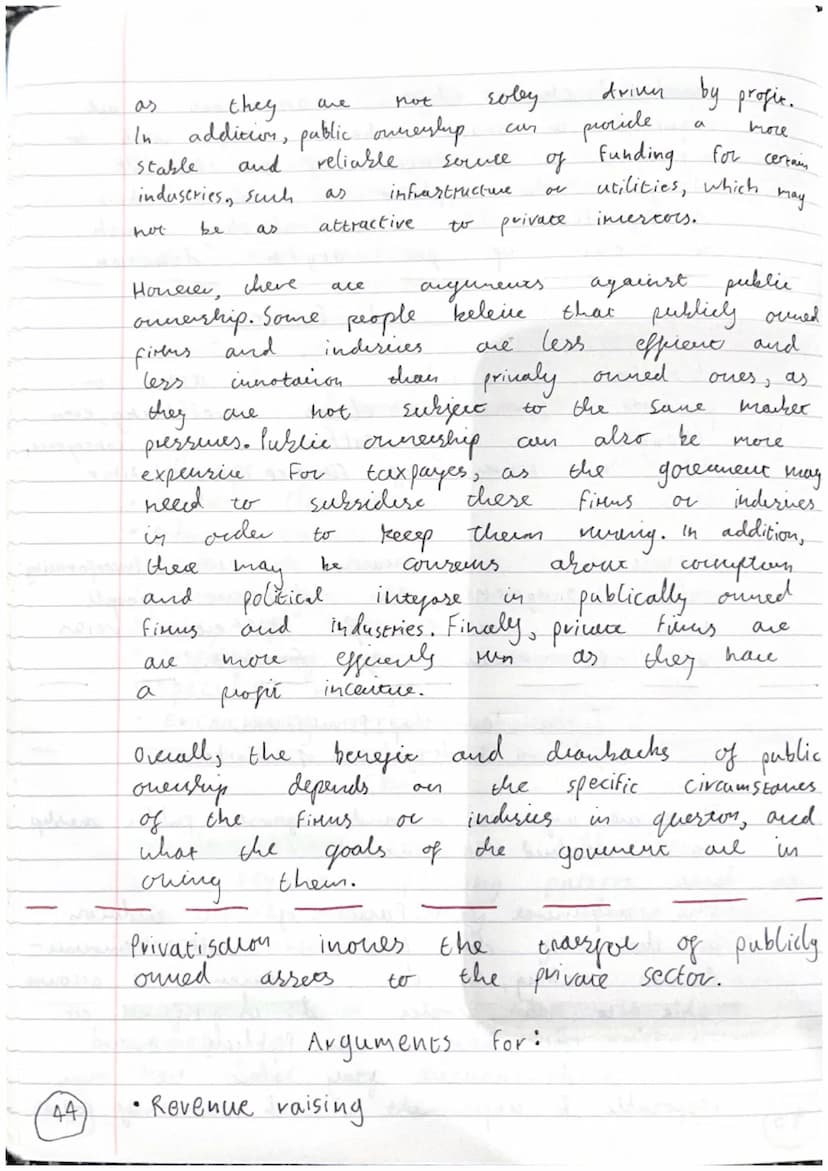 as they are not soley driven by profit.
In addition, public ownership can provide a more
stable and reliable source of funding for certain
industries, such as infrastructure or utilities, which may
not be as attractive to private investors.
However, there are arguments against public
ownership. Some people beleive that publicly owned
firms and indusries are less effient and
less innotation than privaly owned ones, as
they are not subject to the same market
pressures. Public ownership can also be more
expensive for taxpayes, as the government may
need to subsidise these firms or indusries
in order to keeep them runing. In addition,
there may be conserns about corruption
and political intefore in publically owned
firms and industries. Finaly, private firms are
are more effiently run as they have
a profit incentive.
Overall, the benefit and drawbacks of public
onership depends on the specific circumstanes
of the firms or indusries in question, and
what the goals of the goverment are in
owing them.
Privatisation inoves the transfer of publicly
owned assets to the private sector.
Arguments for:
• Revenue raising
44